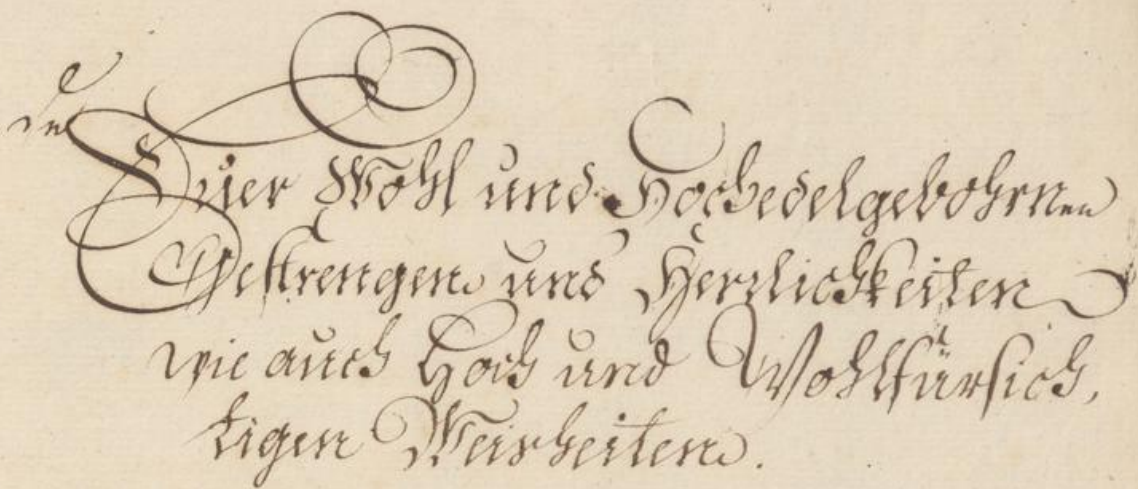 Euer Wohl und Hochedelgebohrnen
Gestrengen und Herrlichkeiten
wie auch Hoch und Wohlfürsich,
tigen Weisheiten.